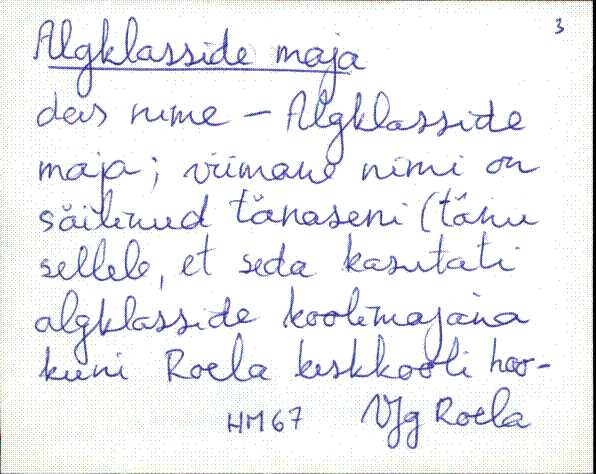 3
Algklasside maja
deks nime – Algklasside
maja; viimane nimi on
säilinud tänaseni (tänu
sellele, et seda kasutati
algklasside koolimajana
kuni Roela keskkooli hoo-
HM 67 VJg Roela